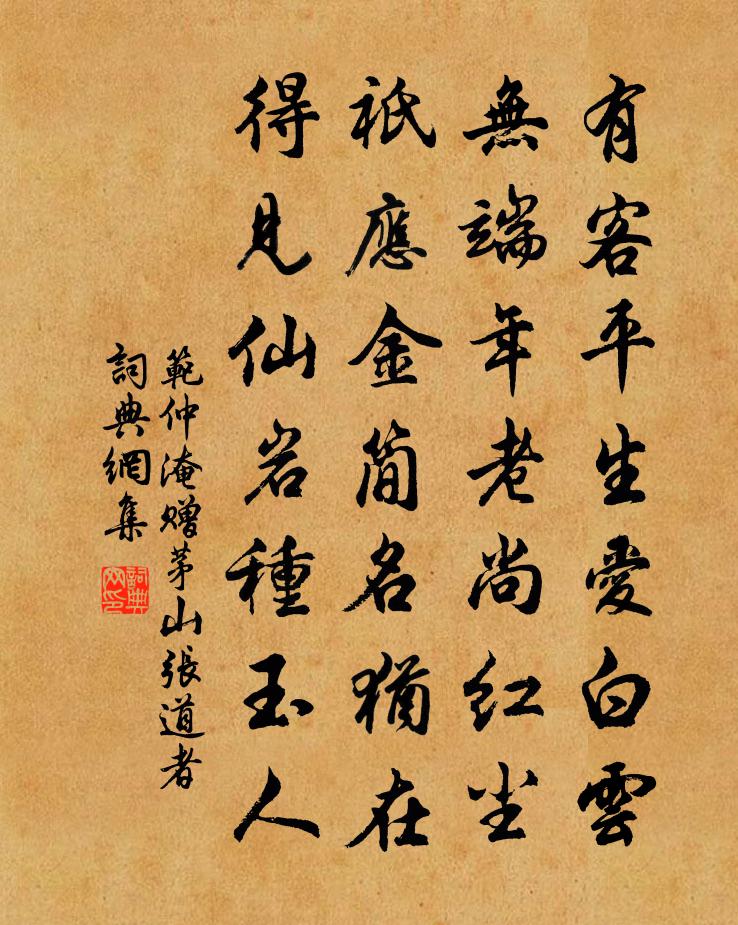 有客平生愛白雲
無端年老尚红尘
祇應金简名猶在
得見仙岩種玉人
範仲淹赠茅山張道者
詞典網集
詞典
网印